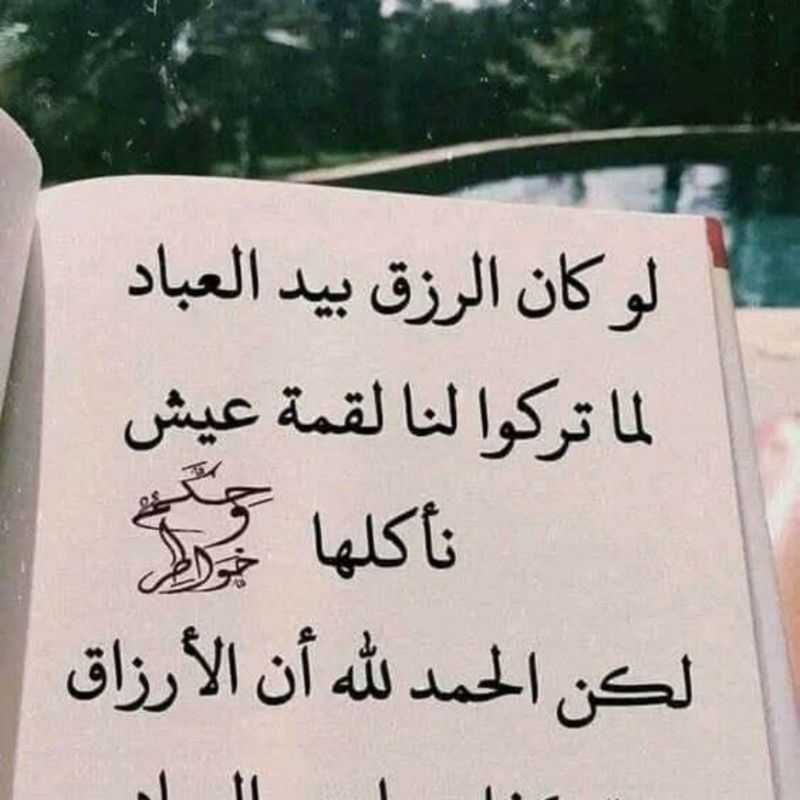 لو كان الرزق بيد العباد
لما تركوا لنا لقمة عيش
نأكلها
حكم و خواطر
لكن الحمد لله أن الأرزاق